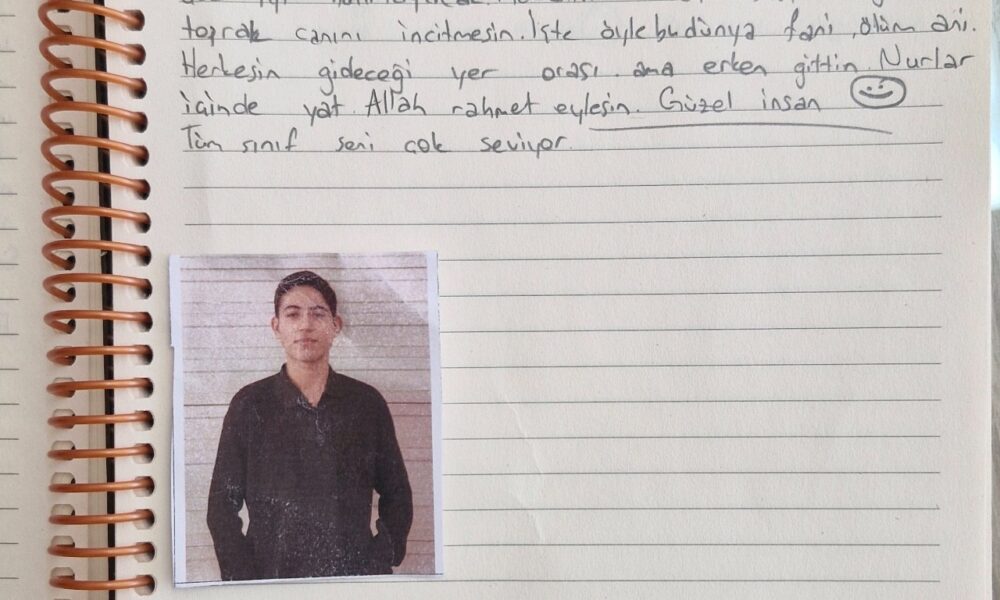 toprak canını incitmesin. İşte öyle bu dünya fani, ölüm ani.
Herkesin gideceği yer orası ama erken gittin. Nurlar
içinde yat. Allah rahmet eylesin. Güzel insan
Tüm sınıf seni çok seviyor.